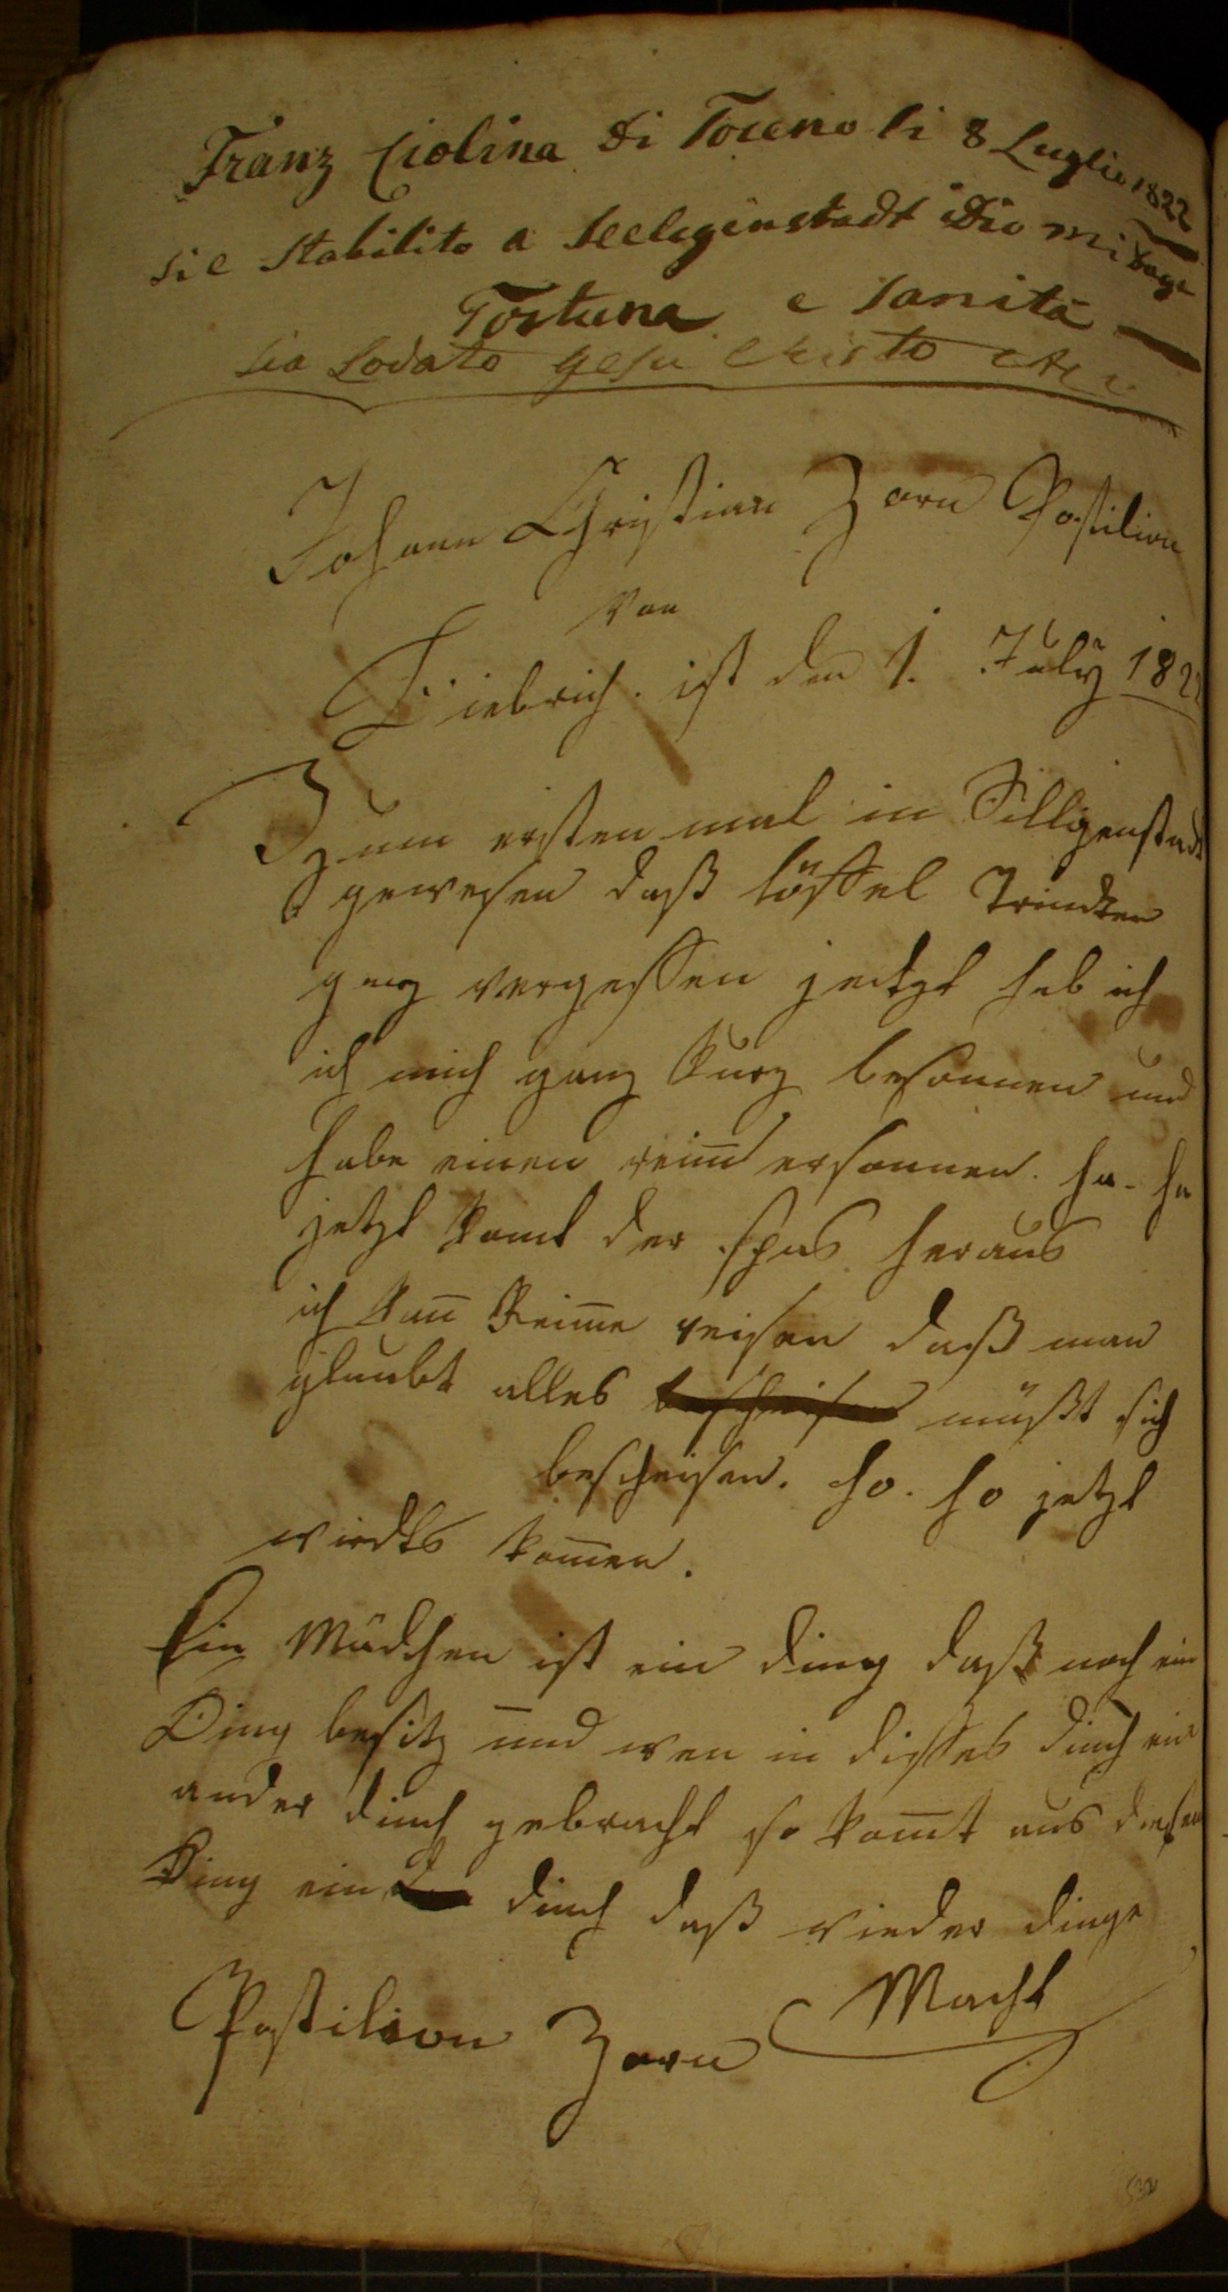 Franz Ciolina Di Toceno li 8 Luglio 1822
si e stabilito a Seeligenstadt iDio mi dage
Fortuna e sanità
sia Lodato gesu Christo
Johann Christian Zorn Postilion
von
Biebrich. ist den 1. July 1822
Zum ersten mal in Sillgenstadt
gewesen daß löffel Trincken
ganz vergessen jetzt hab ich
ich mich ganz kurz besonnen und
habe einen reim̅ ersonnen. ha. ha
jetzt komt der spas heraus
ich kan̅ Reim̅e reisen daß man
glaubt alles bescheisen müßt sich
bescheisen. ho. ho jetzt
wirdts kom̅en.
Ein Mädchen ist ein ding daß noch ein
Ding besitz und wen in disses dinch ein
ander dinch gebracht so kom̅t aus diesen
Ding ein dinch daß wieder dinge
Macht
Postilion Zorn